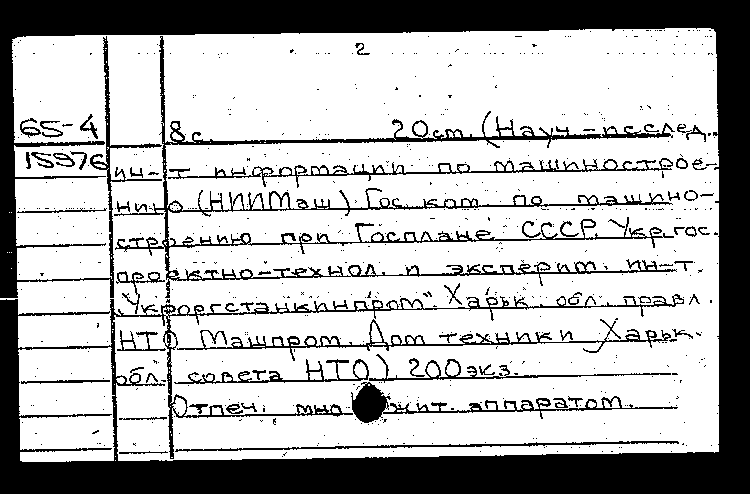 2
65-4 8 с. 20 см. (Науч.-исслед.
15976 ин-т информации по машинострое-
нию (НИИМаш). Гос. ком. по машино-
строению при Госплане СССР. Укр. гос.
проектно-технол. и эксперим. ин-т.
"Укроргстанкинпром". Харьк. обл. правл.
НТО Машпром. Дом техники Харьк.
обл. совета НТО) 200 экз.
Отпеч. мно жит. аппаратом.